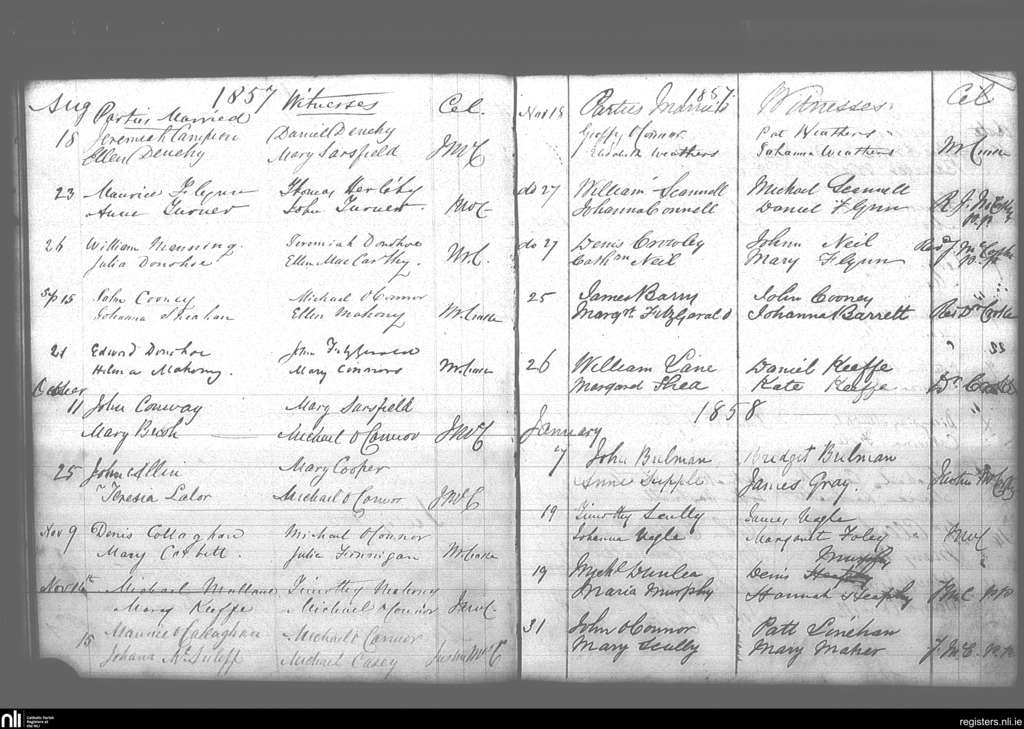 Aug 1857 Witnesses Cel.
Parties Married
18 Jeremiah Campion Daniel Denehy
Ellen Denehy Mary Sarsfield JMcC
23 Maurice Flynn Thomas Herlihy
Anne Turner John Turner JMcC
26 William Manning Jeremiah Donohoe
Julia Donohoe Ellen MacCarthy. McC.
Sep 15 John Cooney Michael O'Connor
Johanna Sheahan Ellen Mahony
21 Edward Donohoe John Fitzgerald
Helena Mahony. Mary Connors
October
11 John Conway Mary Sarsfield
Mary Bush Michael O Connor JMcC
25 John Allin Mary Cooper
Teresia Lalor Michael O Connor JMcC
Nov 9 Denis Callaghan Michael O'Connor
Mary Corbett. Julia Finnigan
Nov 14th Michael Mullane Timothy Mahony
Mary Keeffe Michael O'Connor JMcC
15 Maurice O'Callaghan Michael O Connor
Johana Michael Casey Justin McC
1857.
Nov 18 Parties Married Witnesses Cel
Geoffry O'Connor Pat Weathers
Elizabeth Weathers Johanna Weathers
do 27 William Scannell Michael Scannell
Johanna Connell Daniel Flynn P.P.
do 27 Denis Crowley John Neil
Cathne Neil Mary Flynn P.P.
25 James Barry John Cooney
Margrt FitzGerald Johanna Barrett
26 William Lane Daniel Keeffe
Margaret Shea Kate Keeffe
1858
January
7 John Bulman Bridget Bulman
Anne Supple James Gray. Justin McC
19 Timothy Scully James Nagle
Johanna Nagle Margaret Foley JMcC
Murphy
19 Michl Dunlea Denis
Maria Murphy Hannah Heaphy JMC P.P.
31 John O'Connor Patt Linehan
Mary Scully Mary Maher J. McC. P.P.
nli Catholic Parish
Registers at
the NLI
registers.nli.ie